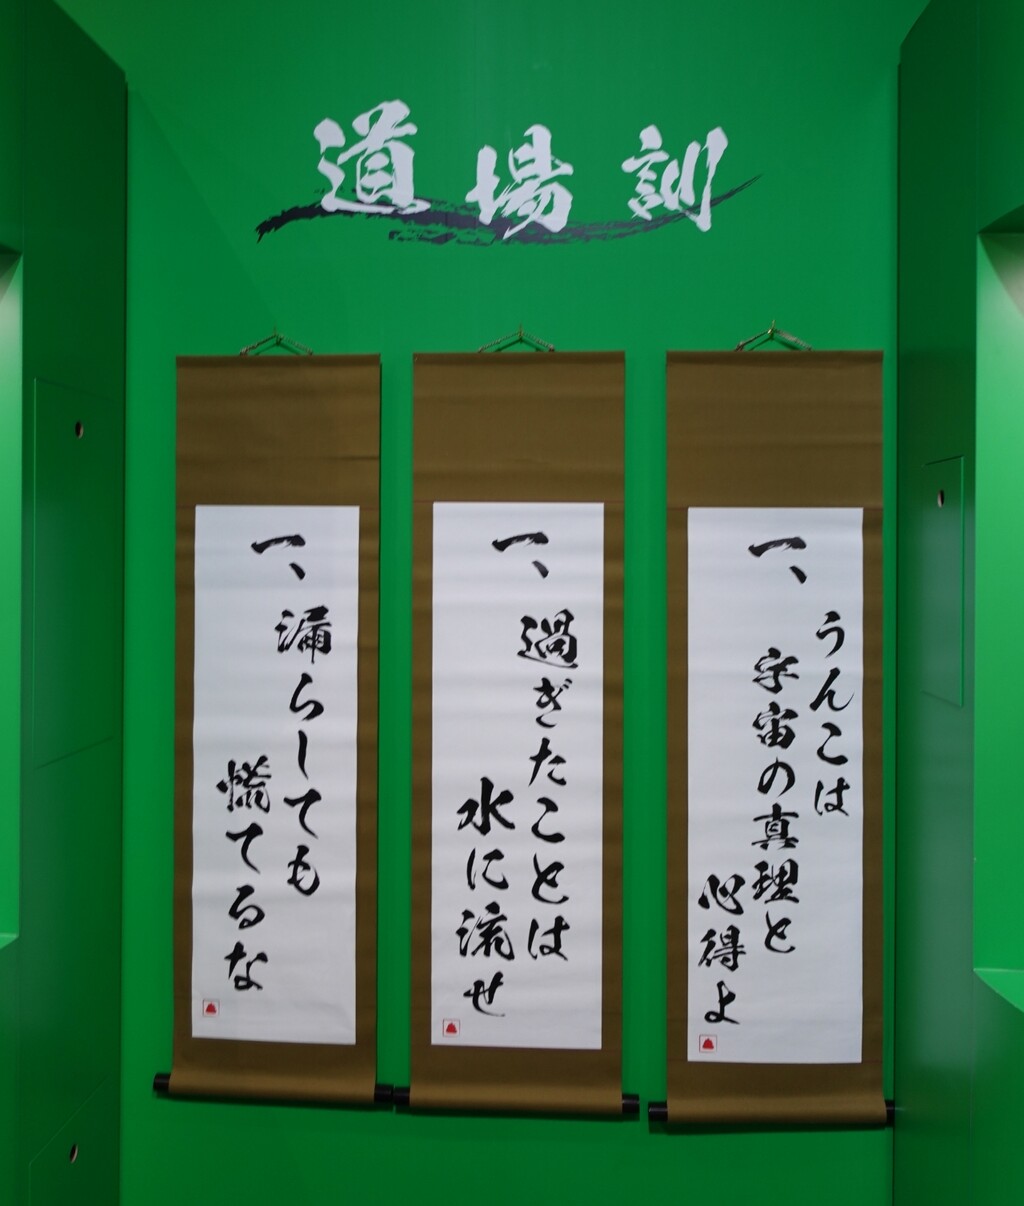 道場訓
一、
うんこは
宇宙の真理と
心得よ
一、
過ぎたことは
水に流せ
一、
漏らしても
慌てるな